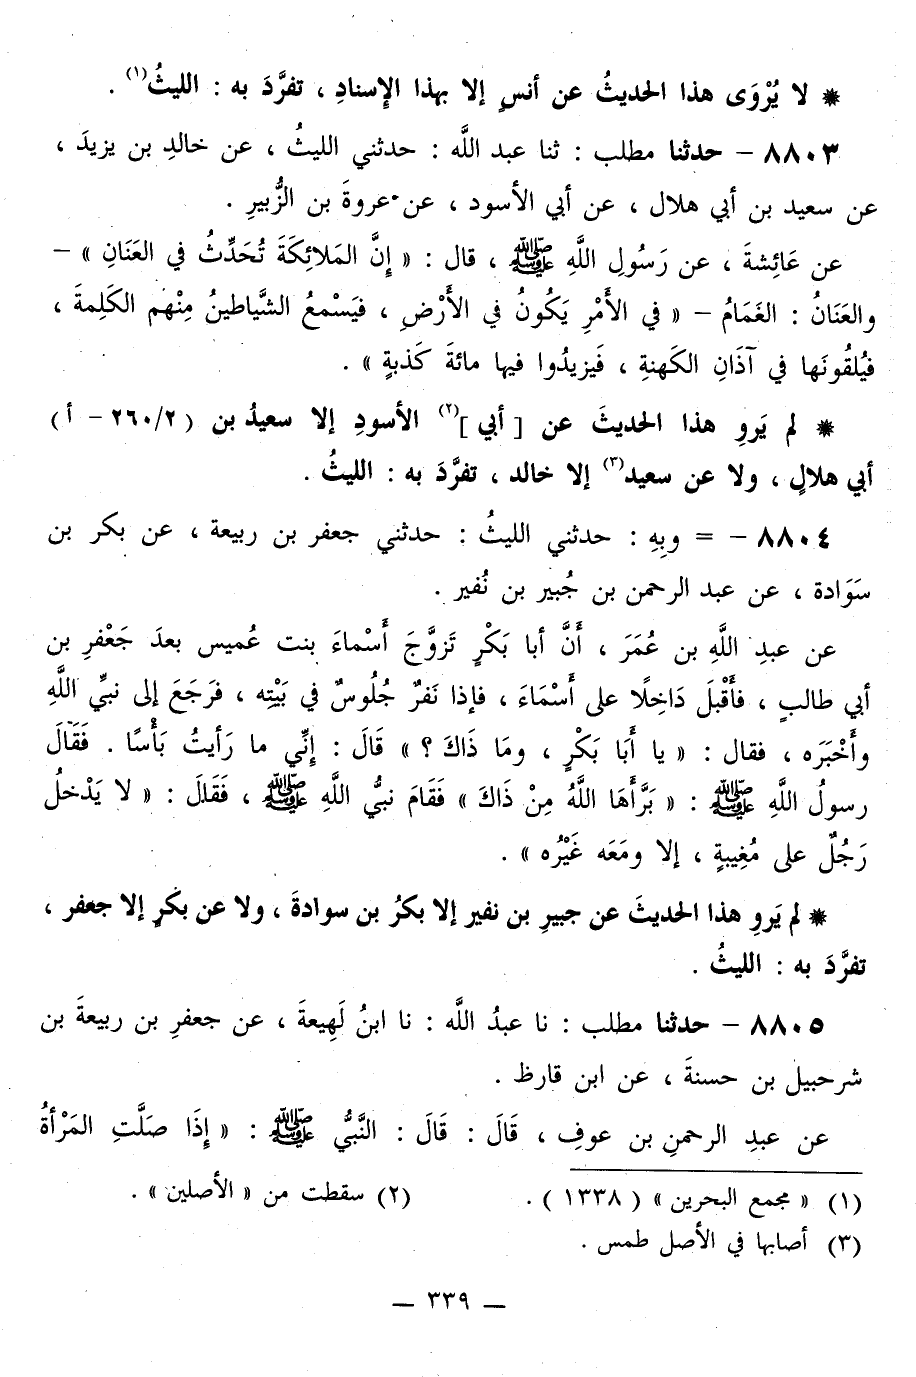 * لا يُرْوَى هذا الحديثُ عن أنسٍ إلا بهذا الإسنادِ ، تفرَّدَ به : الليثُ(١) .
٨٨٠٣ – حدثنا مطلب : ثنا عبد اللَّه : حدثني الليثُ ، عن خالدِ بن يزيدَ ،
عن سعيد بن أبي هلال ، عن أبي الأسود ، عن عروةَ بن الزُّبيرِ .
عن عَائِشةَ ، عن رَسُولِ اللَّهِ ﷺ ، قال : « إِنَّ المَلائِكَةَ تُحَدِّثُ في العَنَانِ » –
والعَنَانُ : الغَمَامُ – « في الأَمْرِ يَكُونُ في الأَرْضِ ، فيَسْمعُ الشَّياطينُ مِنْهم الكَلِمةَ ،
فيُلقُونَها في آذَانِ الكَهنةِ ، فَيزيدُوا فيها مائةَ كَذبةٍ » .
* لم يَروِ هذا الحديثَ عن [ أبي ](٢) الأسودِ إلا سعيدُ بن ( ٢/ ٢٦٠ – أ )
أبي هلالٍ ، ولا عن سعيد(٣) إلا خالد ، تفرَّدَ به : الليثُ .
٨٨٠٤ – = وبِهِ : حدثني الليثُ : حدثني جعفر بن ربيعة ، عن بكر بن
سَوَادة ، عن عبد الرحمن بن جُبير بن نُفير .
عن عبدِ اللَّهِ بن عُمَرَ ، أَنَّ أبا بَكْرٍ تَزوَّجَ أَسْماءَ بنت عُميس بعدَ جَعْفرِ بن
أبي طالبٍ ، فأَقْبلَ دَاخِلًا على أَسْمَاءَ ، فإذا نَفرٌ جُلُوسٌ في بَيْتِه ، فرَجَعَ إلى نبيِّ اللَّهِ
وأَخْبَرَه ، فقال : « يا أَبَا بَكْرٍ ، ومَا ذَاكَ ؟ » قَالَ : إِنِّي ما رَأيتُ بَأْسًا . فَقَالَ
رسولُ اللَّهِ ﷺ : « بَرَّأهَا اللَّهُ مِنْ ذَاكَ » فَقَامَ نبيُّ اللَّهِ ﷺ ، فَقَالَ : « لا يَدْخلُ
رَجُلٌ على مُغِيبةٍ ، إلا ومَعَه غَيْرُه » .
* لم يَروِ هذا الحديثَ عن جبيرِ بن نفير إلا بكرُ بن سوادةَ ، ولا عن بكرٍ إلا جعفر ،
تفرَّدَ به : الليثُ .
٨٨٠٥ – حدثنا مطلب : نا عبدُ اللَّه : نا ابنُ لَهِيعةَ ، عن جعفرِ بن ربيعةَ بن
شرحبيل بن حسنةَ ، عن ابن قارظ .
عن عبدِ الرحمنِ بن عوفِ ، قَالَ : قَالَ : النَّبيُّ ﷺ : « إِذَا صلَّتِ المَرْأةُ
(١) « مجمع البحرين » ( ١٣٣٨ ) .
(٢) سقطت من « الأصلين » .
(٣) أصابها في الأصل طمس .
– ٣٣٩ –